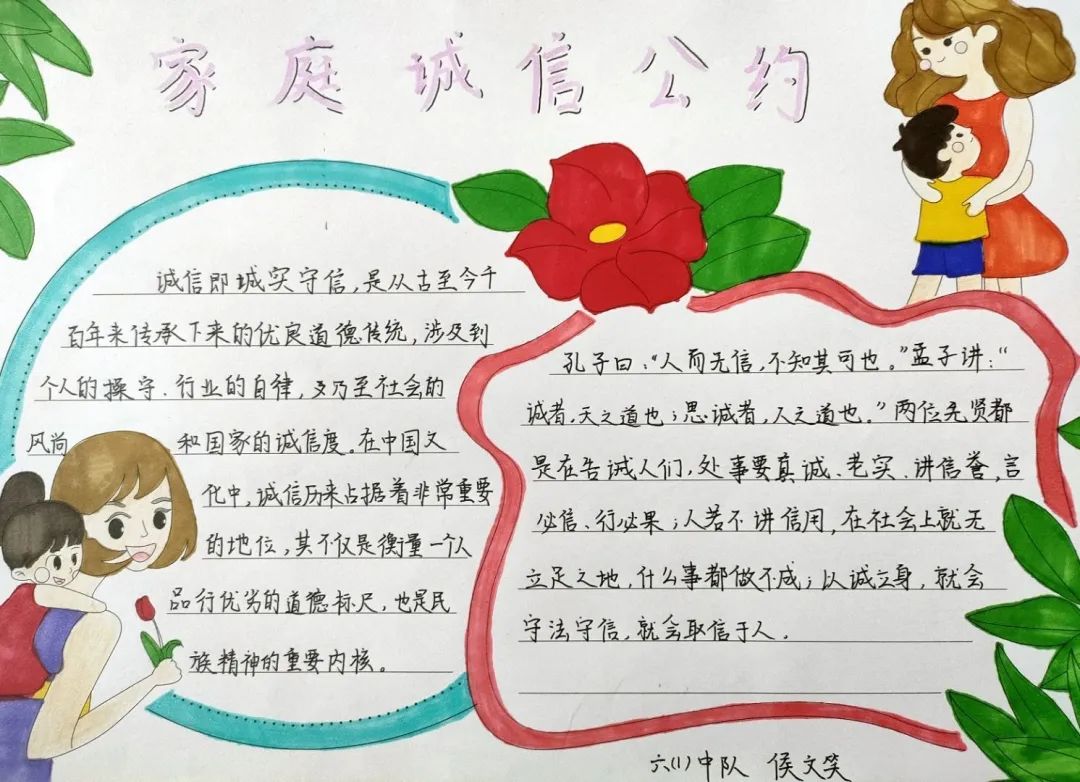 家庭诚信公约
诚信即城实守信，是从古至今千
百年来传承下来的优良道德传统，涉及到
个人的操守、行业的自律，乃至社会的
风尚和国家的诚信度。在中国文
化中，诚信历来占据着非常重要
的地位，其不仅是衡量一个人
品行优劣的道德标尺，也是民
族精神的重要内核。
孔子曰：“人而无信，不知其可也。”孟子讲：“
诚者，天之道也；思诚者，人之道也。”两位先贤都
是在告诫人们，处事要真诚、老实、讲信誉，言
必信、行必果；人若不讲信用，在社会上就无
立足之地，什么事都做不成；以诚立身，就会
守法守信，就会取信于人。
六(1)中队 侯文笑